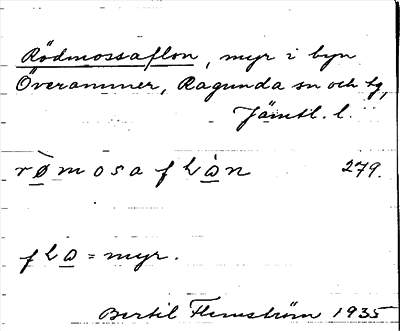 Rödmossaflon, myr i byn
Överammer, Ragunda sn och tg,
Jämtl. l.
rø̀mosafLàn 279.
fLa = myr.
Bertil Flemström 1935